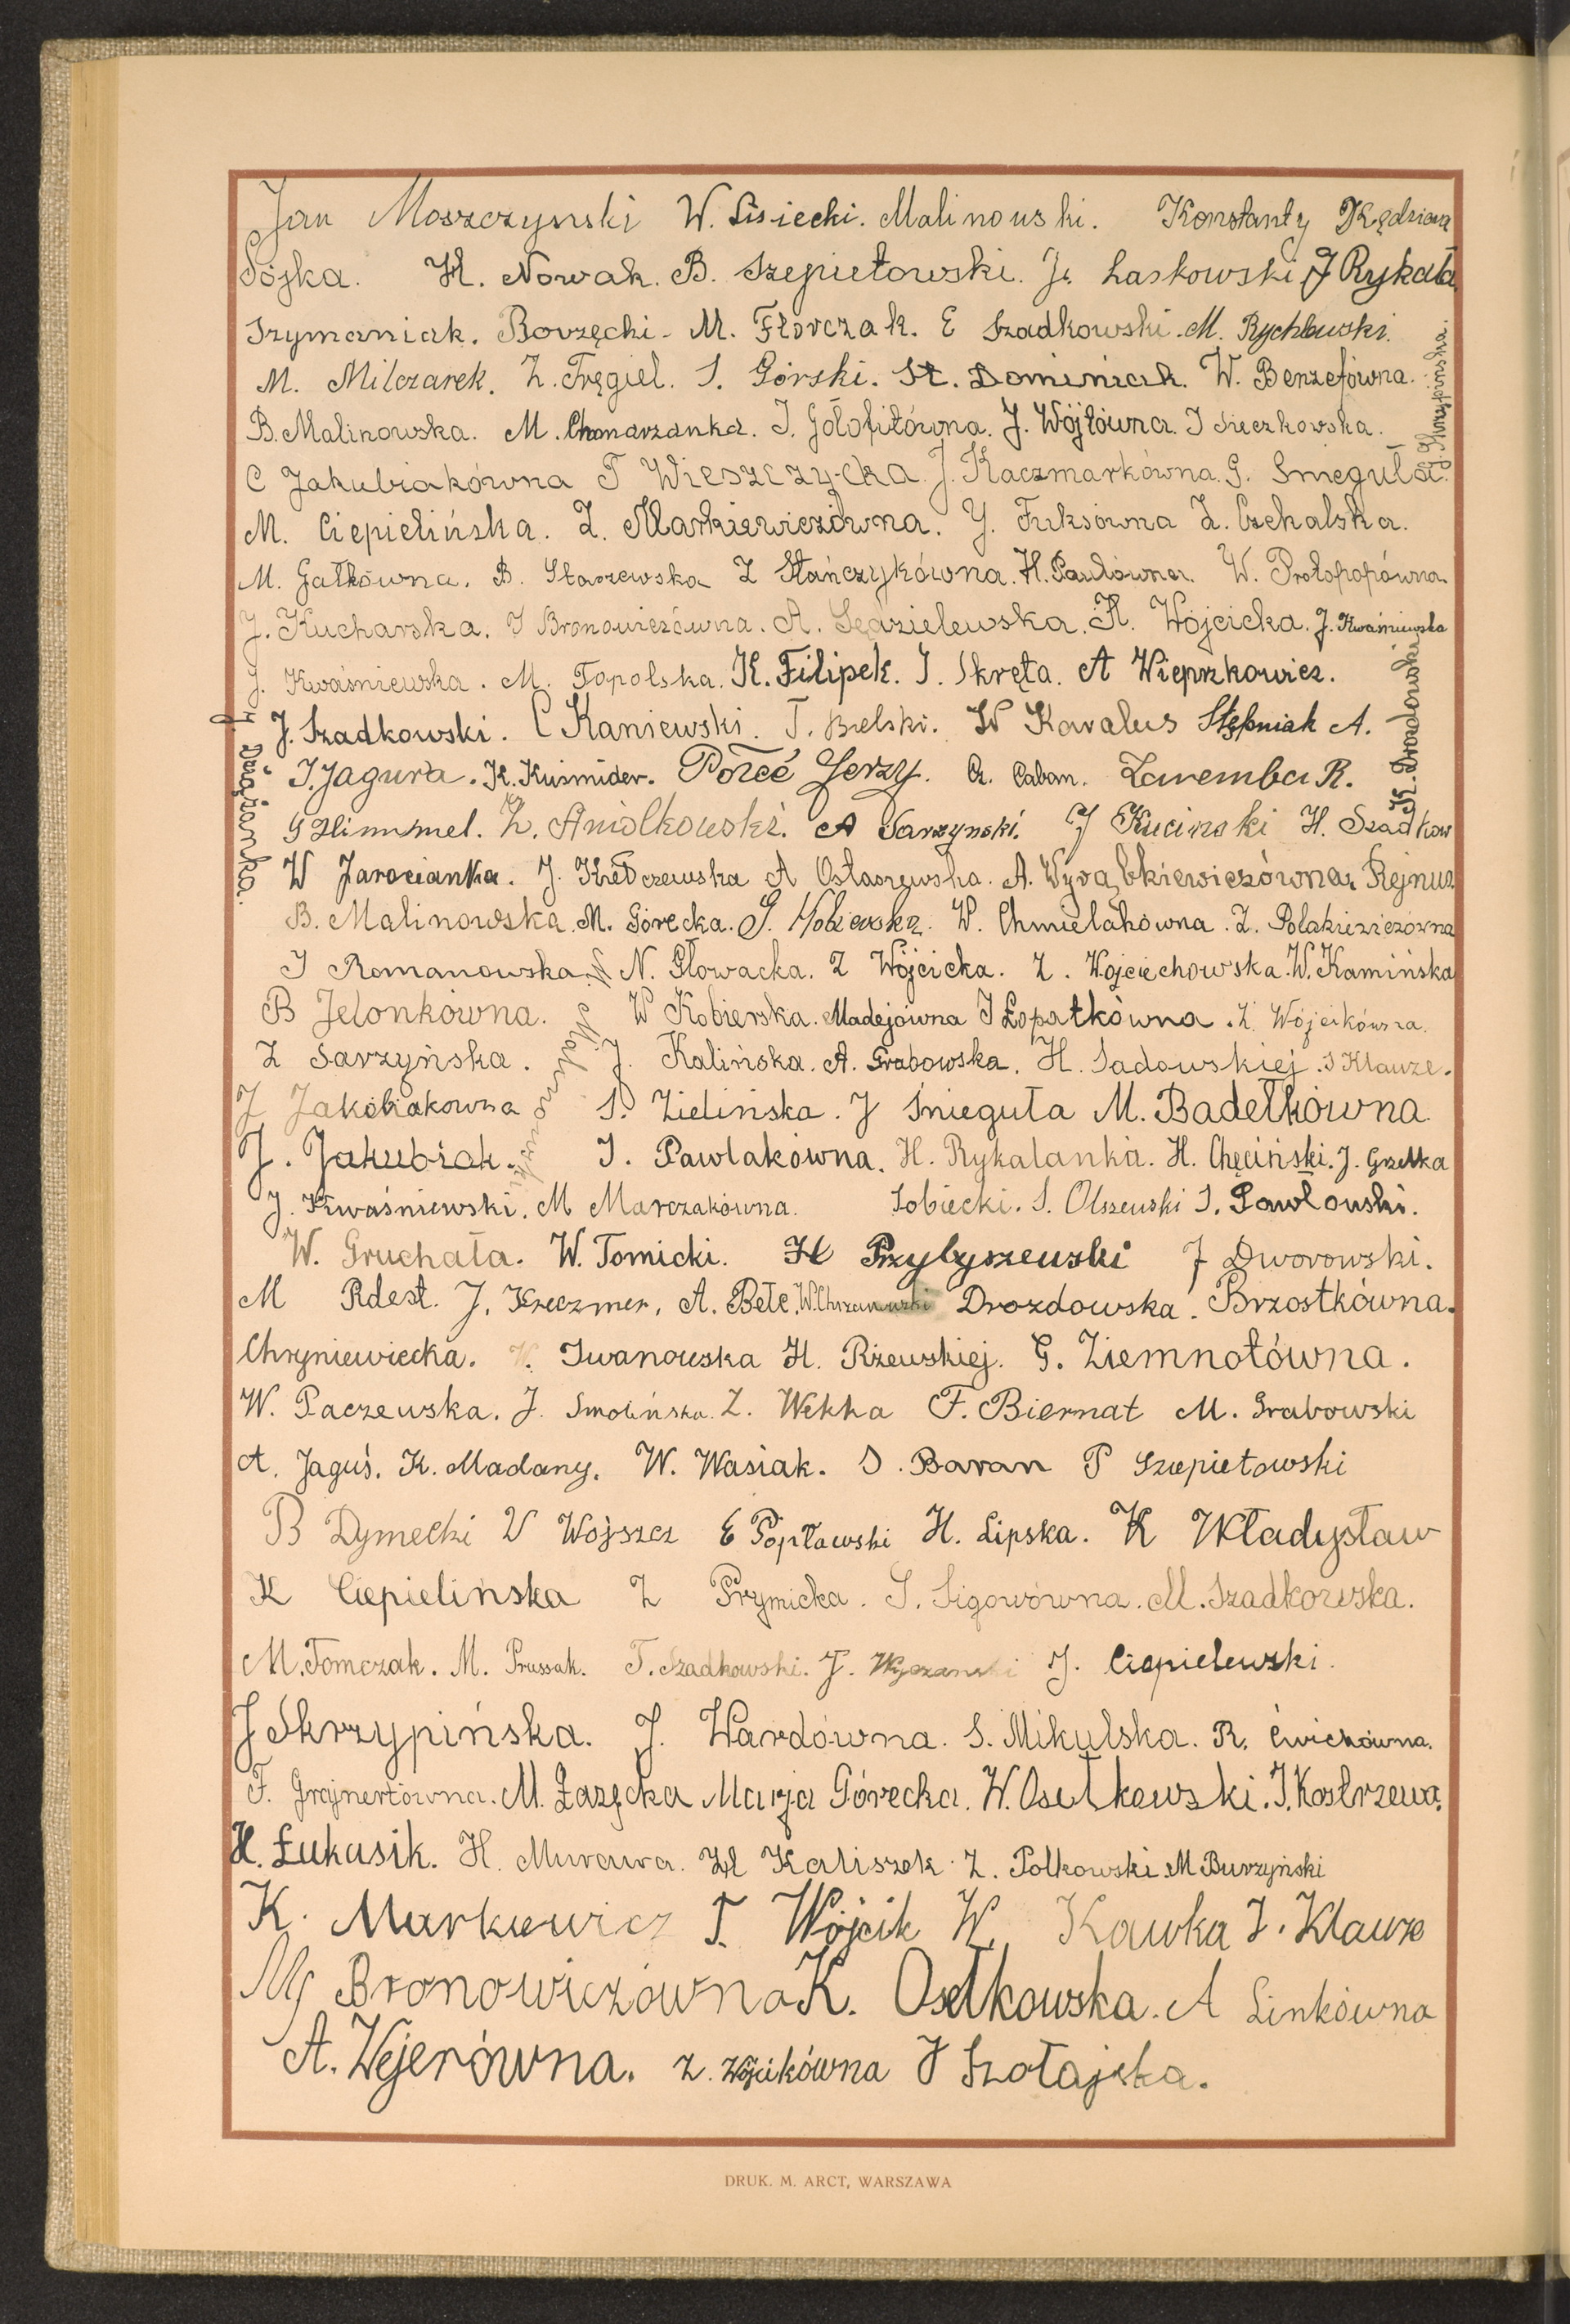 Jan Moszczynski W. Lisiecki. Malinowski. Konstanty Kędziora
Sójka. H. Nowak. B. Szepietowski. J. Laskowski J Rykała
Szymaniak. Borzęcki - M. Florczak. E Szadkowski. M. Rychlewski.
M. Milczarek. Z. Fręgiel. S. Górski. St. Dominiak. W. Benzefówna.
B. Malinowska. M. Chonarzanka. J. Gólofitówna. J. Wójtówna. J Sieczkowska.
J. Skrzypińska.
C Jakubiakówna T Wieszczycka J. Kaczmarkówna. G. Smeguła.
M. Ciepielińska. Z. Markiewiczówna. Y. Fuksówna Z. Czekalska.
M. Gałkówna. B. Staszewska Z Stańczykówna. H. Pawłówna. W. Protopopówna
J. Kucharska. J Bronowiczówna. A. Sędzielewska. H. Wójcicka. J. Kwaśniewska
J. Kwaśniewska. M. Topolska. K. Filipek. J. Skręta. A Wieprzkowicz.
K. Drozdowski
J. Szadkowski. C Kaniewski. T. Bielski. W Kavalus Stębniak A.
J. Jagura. K. Kuśmider. Jerzy. A. Caban. Zaremba R.
G Himmel. Z. Aniołkowski. A Sarzynski. J Kucinski H. Szadkow
W Jarocianka. J. Kiełczewska A Ostaszewska. A. Wyrąbkiewiczówna, Rejnus
B. Malinowska. M. Górecka. W. Chmielakówna. Z. Polakiewiczówna
J Romanowska N. Głowacka. Z Wójcicka. Z. Wojciechowska. W. Kamińska
W. Malinowski
B Jelonkówna. W Kobierska. Madejówna J Łopatkówna. Z. Wójcikówna.
Z Sarzyńska. J. Kalińska. A. Grabowska. H. Sadowskiej. S Klauze.
J Jakóbiakowna S. Zielińska. J Śnieguła M. Badełkówna
J. Jakubiak. J. Pawlakówna. H. Rykalanka. H. Chęciński. J. Grzelka
J. Kwaśniewski. M Marczakówna. Sobiecki. S. Olszewski S. Pawłowski.
W. Gruchała. W. Tomicki. H Przybyszewski J Dworowski.
M Rdest. J. Kreczmer. A. Bełc. W. Chrzanowski Drozdowska. Brzostkówna.
Chryniewiecka. W. Iwanowska H. Rżewskiej. G. Ziemnotówna.
W. Paczewska. J. Smolińska. Z. Wekka F. Biernat M. Grabowski
A. Jaguś. K. Madany. W. Wasiak. S. Baran P Szepietowski
B Dymecki W Wojszcz E Popławski H. Lipska. K Władysław
K Ciepielińska Z Prymicka. S. Sigowówna. M. Szadkowska.
M. Tomczak. M. Prussak. T. Szadkowski. J. J. Ciepielewski.
J Skrzypińska. J. Wardówna. S. Mikulska. R. Ćwiekówna.
F. Grajnertówna. M. Łazęcka Marja Górecka. W. Osełkowski. J. Kostrzewa.
H. Łukasik. H. Murawa. H Kaliszek. Z. Polkowski. M Burzyński
K. Markiewicz T. Wójcik W. Kawka J. Klauze
M Bronowiczówna K. Osełkowska. A Linkówna
A. Wejerówna. Z. Wójcikówna J Szołajska.
DRUK. M. ARCT, WARSZAWA